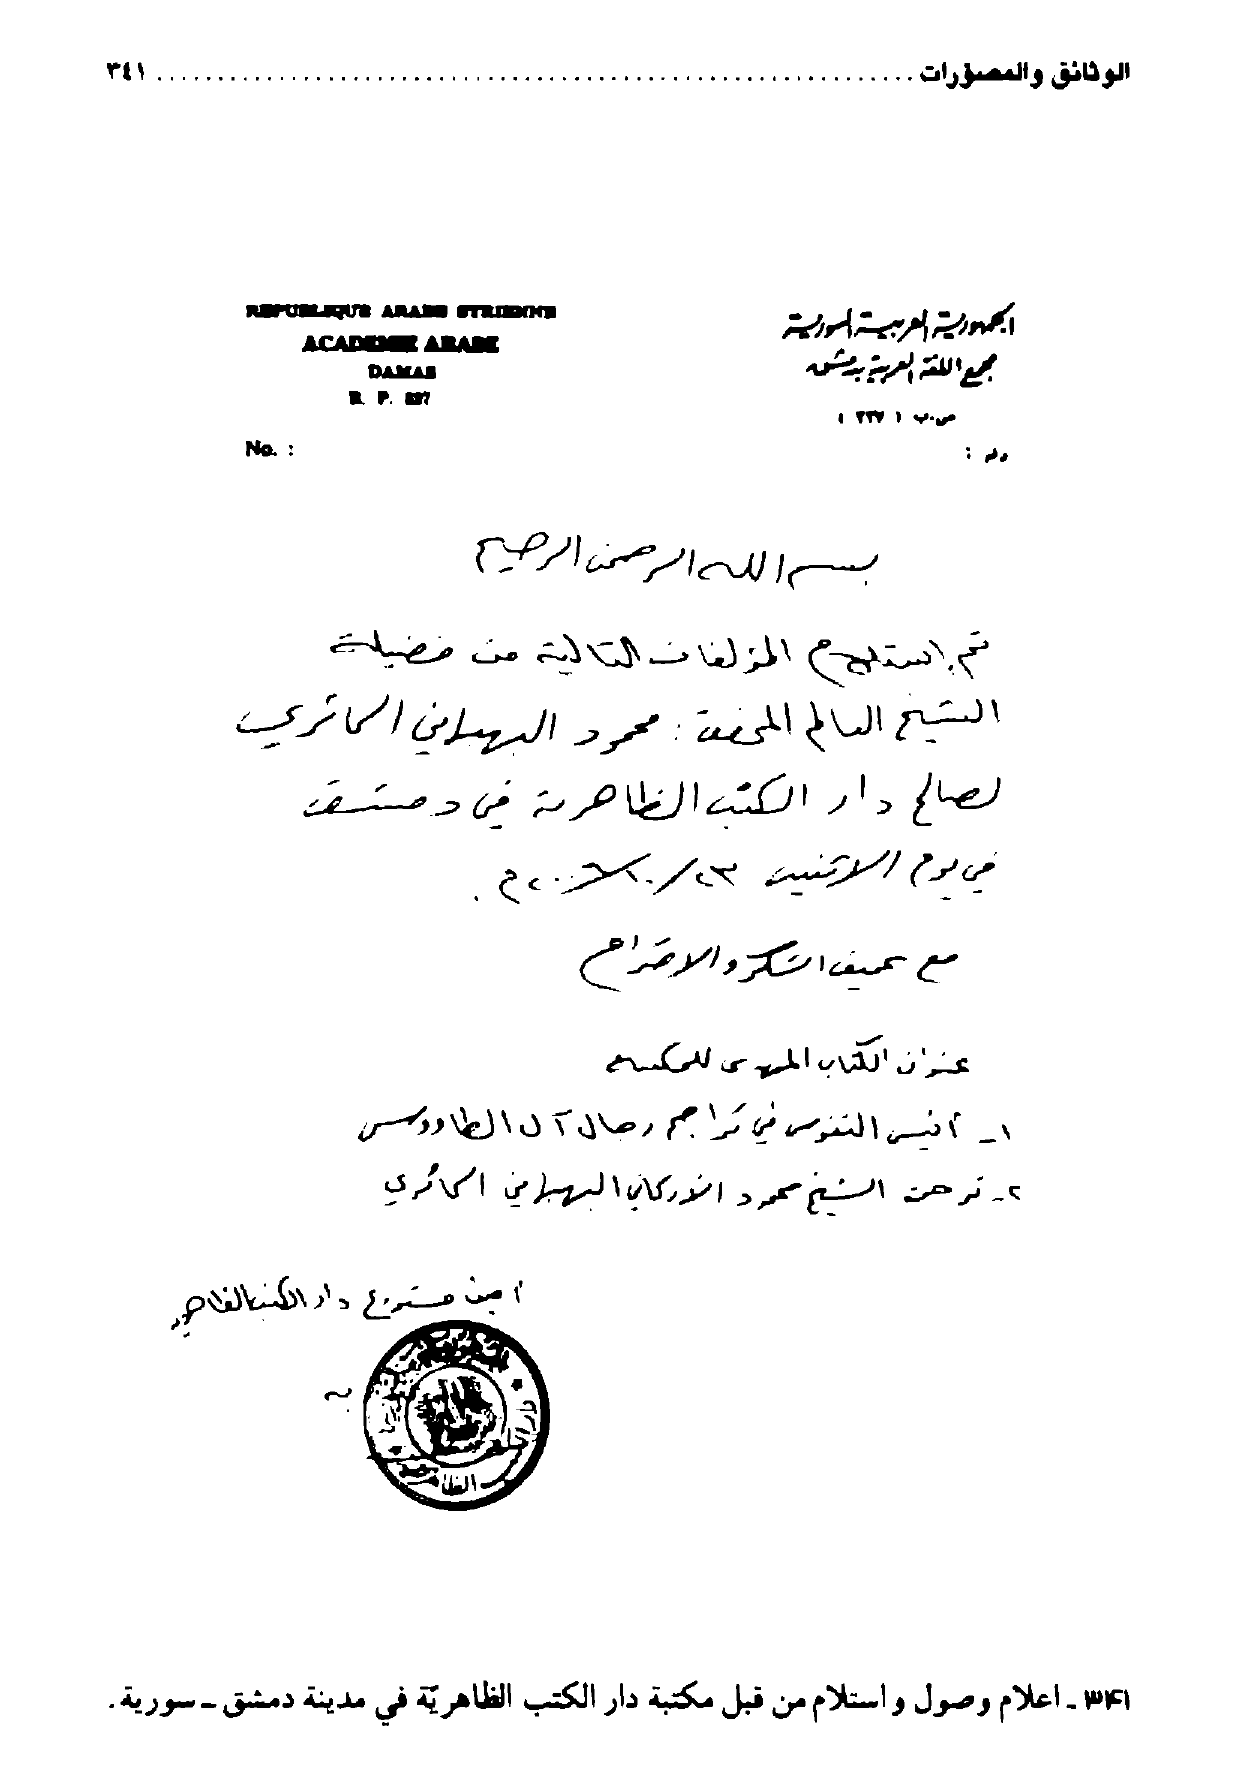 الوثائق والمصوّرات ........................................................ ٣٤١
REPUBLIQUE ARABE SYRIENNE
ACADEMIE ARABE
DAMAS
No. :
الجمهورية العربية السورية
مجمع اللغة العربية بدمشق
ص.ب
رقم :
بسم الله الرحمن الرحيم
تم استلام المؤلفات التالية من فضيلة
الشيخ العالم المحقق : محمود البهبهاني الحائري
لصالح دار الكتب الظاهرية في دمشق
في يوم الاثنين ٢٣/١٠/٢٠٠٦ م .
مع عميق الشكر والاحترام
عنوان الكتاب المهدى للمكتبة
١- أنيس النفوس في تراجم رجال آل الطاووس
٢- ترجمة الشيخ محمود الأركاني البهبهاني الحائري
أمين مستودع دار الكتب الظاهرية
٣٤١ ـ اعلام وصول و استلام من قبل مكتبة دار الكتب الظاهريّة في مدينة دمشق ـ سورية .